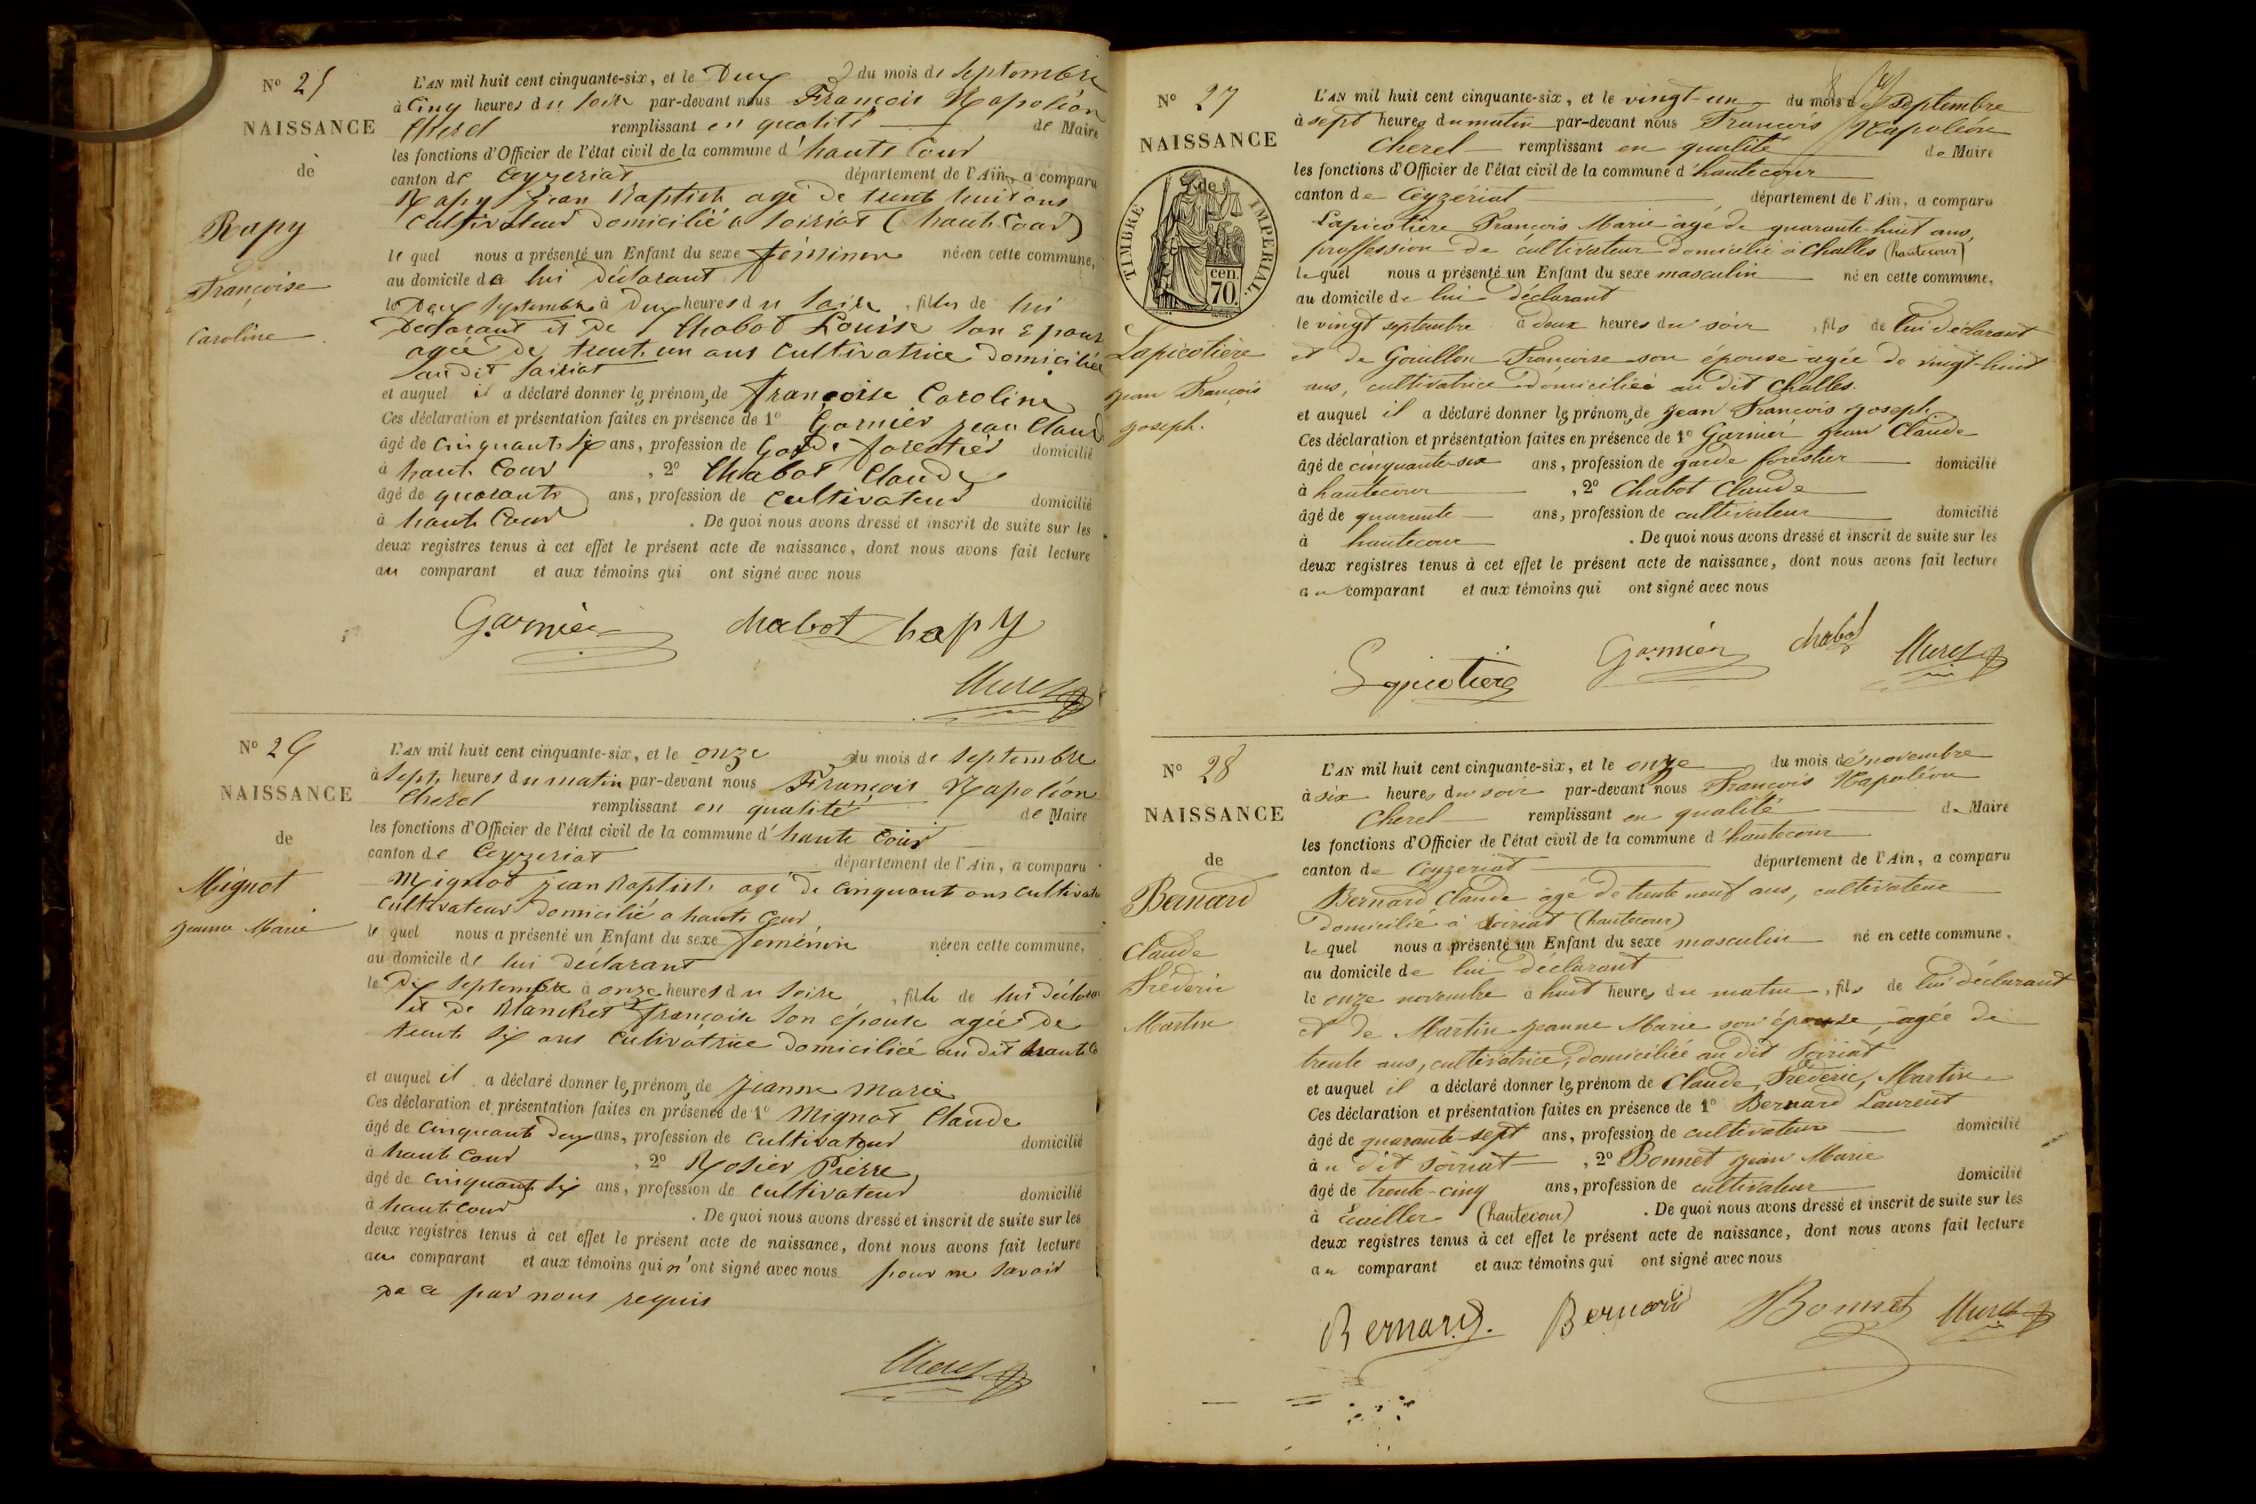 N° 25
NAISSANCE
de
Rapy
Françoise
Caroline
L'AN mil huit cent cinquante-six, et le Deux du mois de Septembre
à Cinq heures du soire par-devant nous François Napoléon
Cherel remplissant en qualité de Maire
les fonctions d'Officier de l'état civil de la commune d'haute Cour
canton de Ceyzeriat département de l'Ain, a comparu
Rapy Jean Baptiste agé de trente huit ans
Cultivateur domicilié a Soiriat (haute Cour)
le quel nous a présenté un Enfant du sexe féminin née en cette commune,
au domicile de lui déclarant
le Deux Septembre à Deux heures du Soire, fille de lui
Déclarant et de Chabot Louise Son Epouse
agée de trente un ans Cultivatrice domiciliée
audit Soiriat
et auquel il a déclaré donner les prénoms de françoise Caroline
Ces déclaration et présentation faites en présence de 1° Garnier Jean Claude
âgé de Cinquante Six ans, profession de Garde forestier domicilié
à haute Cour, 2° Chabot Claude
âgé de quarante ans, profession de Cultivateur domicilié
à haute Cour. De quoi nous avons dressé et inscrit de suite sur les
deux registres tenus à cet effet le présent acte de naissance, dont nous avons fait lecture
au comparant et aux témoins qui ont signé avec nous
Garnier chabot Rapy
Cherel
N° 26
NAISSANCE
de
Mignot
Jeanne Marie
L'AN mil huit cent cinquante-six, et le onze du mois de Septembre
à Sept heures du matin par-devant nous François Napoléon
Cherel remplissant en qualité de Maire
les fonctions d'Officier de l'état civil de la commune d'haute Cour
canton de Ceyzeriat département de l'Ain, a comparu
Mignot Jean Baptiste agé de Cinquante ans
Cultivateur domicilié a haute Cour,
le quel nous a présenté un Enfant du sexe féminin née en cette commune,
au domicile de lui déclarant
le Dix Septembre à onze heures du Soire, fille de lui déclarant
et de Blanchet françoise Son épouse agée de
trente Six ans Cultivatrice domiciliée au dit haute Co
et auquel il a déclaré donner les prénoms de Jeanne Marie
Ces déclaration et présentation faites en présence de 1° Mignot Claude
âgé de Cinquante Deux ans, profession de Cultivateur domicilié
à haute Cour, 2° Rosier Pierre
âgé de Cinquante Six ans, profession de Cultivateur domicilié
à haute Cour. De quoi nous avons dressé et inscrit de suite sur les
deux registres tenus à cet effet le présent acte de naissance, dont nous avons fait lecture
au comparant et aux témoins qui n'ont signé avec nous pour ne savoir
de ce par nous requis
Cherel
N° 27
NAISSANCE
de
TIMBRE IMPÉRIAL
cen. 70
Lapicotière
Jean François
Joseph.
L'AN mil huit cent cinquante-six, et le vingt-un du mois de Septembre
à sept heures du matin par-devant nous François Napoléon
Cherel remplissant en qualité de Maire
les fonctions d'Officier de l'état civil de la commune d'hautecour
canton de Ceyzériat département de l'Ain, a comparu
Lapicotière François Marie âgé de quarante-huit ans,
proffession de cultivateur domicilié à Challes (hautecour)
le quel nous a présenté un Enfant du sexe masculin né en cette commune,
au domicile de lui déclarant
le vingt septembre à deux heures du soir, fils de lui déclarant
et de Gouillon Françoise son épouse agée de vingt-huit
ans, cultivatrice domiciliée au dit Challes.
et auquel il a déclaré donner les prénoms de Jean François Joseph.
Ces déclaration et présentation faites en présence de 1° Garnier Jean Claude
âgé de cinquante-six ans, profession de garde forestier domicilié
à hautecour, 2° Chabot Claude
âgé de quarante ans, profession de cultivateur domicilié
à hautecour. De quoi nous avons dressé et inscrit de suite sur les
deux registres tenus à cet effet le présent acte de naissance, dont nous avons fait lecture
au comparant et aux témoins qui ont signé avec nous
Lapicotiere Garnier chabot Cherel
N° 28
NAISSANCE
de
Bernard
Claude
Fréderic
Martin
L'AN mil huit cent cinquante-six, et le onze du mois de novembre
à six heures du soir par-devant nous François Napoléon
Cherel remplissant en qualité de Maire
les fonctions d'Officier de l'état civil de la commune d'hautecour
canton de Ceyzeriat département de l'Ain, a comparu
Bernard Claude âgé de trente neuf ans, cultivateur
domicilié à Soiriat (hautecour)
le quel nous a présenté un Enfant du sexe masculin né en cette commune,
au domicile de lui déclarant
le onze novembre à huit heures du matin, fils de lui déclarant
et de Martin Jeanne Marie son épouse agée de
trente ans, cultivatrice, domiciliée au dit Soiriat
et auquel il a déclaré donner les prénom de Claude, Fréderic, Martin
Ces déclaration et présentation faites en présence de 1° Bernard Laurent
âgé de quarante-sept ans, profession de cultivateur domicilié
au dit Soiriat, 2° Bonnet Jean Marie
âgé de trente-cinq ans, profession de cultivateur domicilié
à (hautecour). De quoi nous avons dressé et inscrit de suite sur les
deux registres tenus à cet effet le présent acte de naissance, dont nous avons fait lecture
au comparant et aux témoins qui ont signé avec nous
Bernard. Bernard Bonnet Cherel